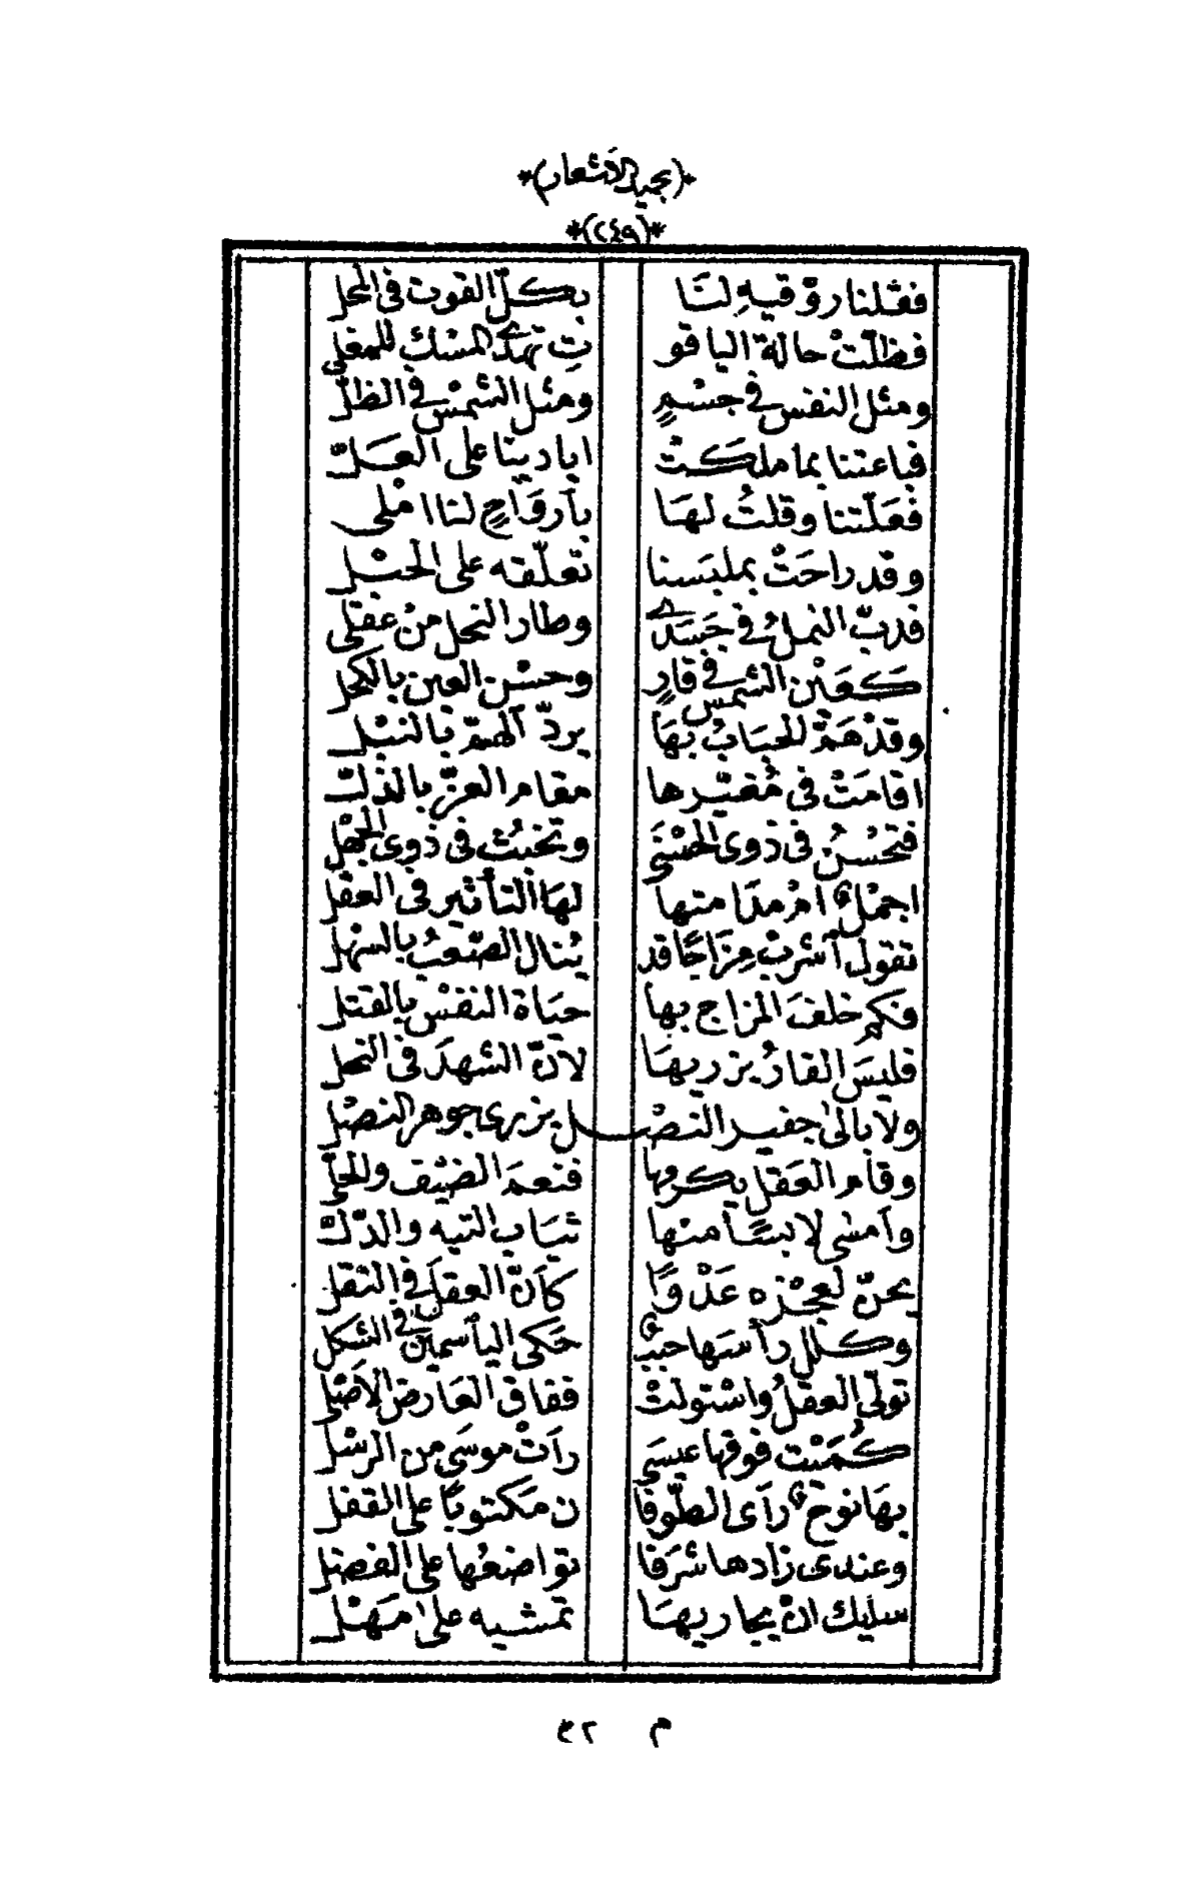 *(بجيد الأشعار)*
*(٢٤٩)*
فقلنا روّقيهِ لنَا بكلّ القوت فى المحل
فظلّتْ حالة الياقو تِ تهدى المسك للمغلى
ومثل النفس فى جسْمٍ ومثل الشمْس فى الظلّ
فباعتنا بما ملكتْ ايادينا على العلّ
فعَلّتنا وقلتُ لهَا بأروَاحٍ لنا املى
وقد راحَتْ بملبَسنا تعلّقه على الحبْل
فدبّ النملُ فى جَسَدى وطار النحل منْ عقلى
كعَيْن الشمس فى قارٍ وحسْن العين بالكحل
وقدْ همّ الحبَابُ بهَا يردّ الهمّ بالنبْل
اقامَتْ فى مُغيّرها مقام العزّ بالذلّ
فتحْسُنُ فى ذوى الحسْنَى وتخبُث فى ذوى الجهْل
اجمْلٌ امْ مدَا منها لهَا التأثير فى العقْل
تقول أشربْ مِزَاجًا قد يُنال الصّعبُ بالسهْل
فكم خلفَ المزاج بها حيَاة النفسْ بالقتل
فليسَ القارُ يزريهَا لأنّ الشهدَ فى النحل
ولا بالىٰ جفير النصْـ ـل يزرى جوهر النصْل
وقام العَقل يكرمها فنعمَ الضيْف والمحلّ
وأمسٰى لابسًا منْها ثيَاب التيه والدّلّ
يحنّ لعجْزه عَدْوًا كأنّ العقلَ فى الثقل
وكلل رأسَها حببٌ حَكى اليأسمين فى الشكل
تولّى العقلُ واسْتولتْ ففاق العَارض الأصْلى
كُمَيْت فوقها عيسَى رأتْ موسَى من الرسْل
بهَا نوحٌ رأى الطّوفا ن مَكتوبًا على القفل
وعندى زادها شرَفا تواضعُها على الفضل
سليك انْ يجاريهَا تمشيه علىٰ مَهَل
م ٣٢